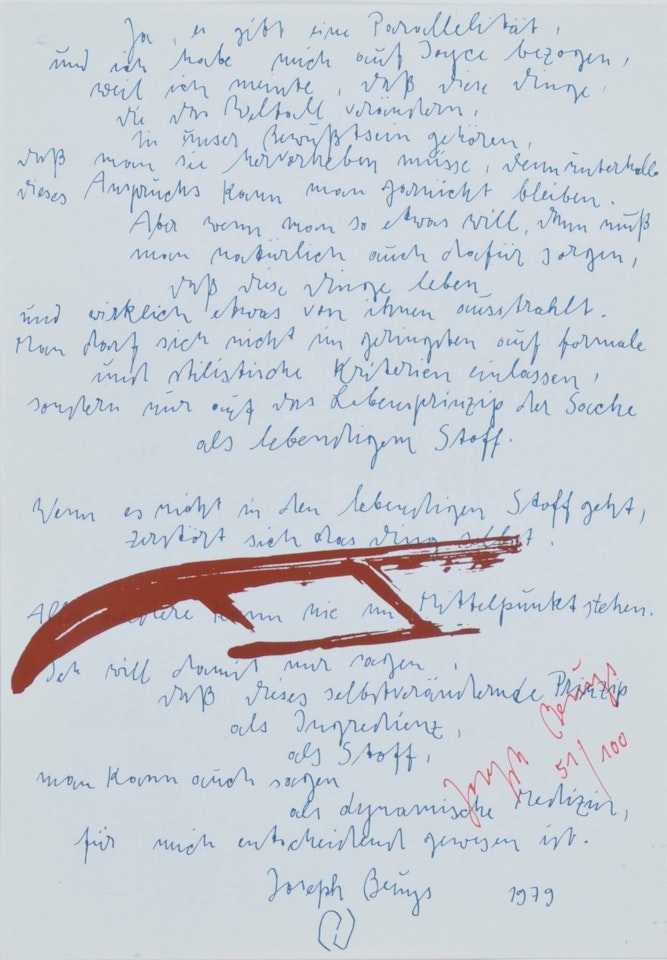 Ja, es gibt eine Parallelität,
und ich habe mich auf Joyce bezogen,
weil ich meinte, daß diese Dinge,
die das Weltall verändern,
in unser Bewußtsein gehören,
daß man sie hervorheben müsse, denn unterhalb
dieses Anspruchs kann man garnicht bleiben.
Aber wenn man so etwas will, dann muß
man natürlich auch dafür sorgen,
daß diese Dinge leben
und wirklich etwas von ihnen ausstrahlt.
Man darf sich nicht im geringsten auf formale
und stilistische Kriterien einlassen,
sondern nur auf das Lebensprinzip der Sache
als lebendigem Stoff.
Wenn es nicht in den lebendigen Stoff geht,
zerstört sich das Ding selbst.
kann nie im Mittelpunkt stehen.
Ich will damit nur sagen,
daß dieses selbstverändernde Prinzip
als Ingredienz,
als Stoff,
man kann auch sagen
als dynamische Medizin,
für mich entscheidend gewesen ist.
Joseph Beuys 1979
Joseph Beuys
51/100